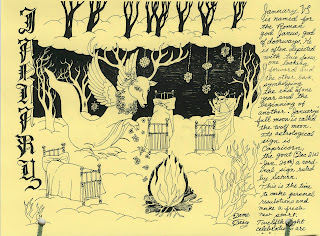 JANUARY
January, is
is named for
the Roman
god Janus, god
of doorways. He
is often depicted
with two faces,
one looking
forward and
the other back,
symbolizing
the end of one
year and the
beginning of
another. January
full moon is called
the wolf moon.
astrological
sign is
Capricorn,
the goat (Dec 21st
Jan 20th) a card-
inal sign ruled
by Saturn.
This is the time
to make personal
resolutions and
make a fresh
new start.
Twelfth night
celebrations are
Diane